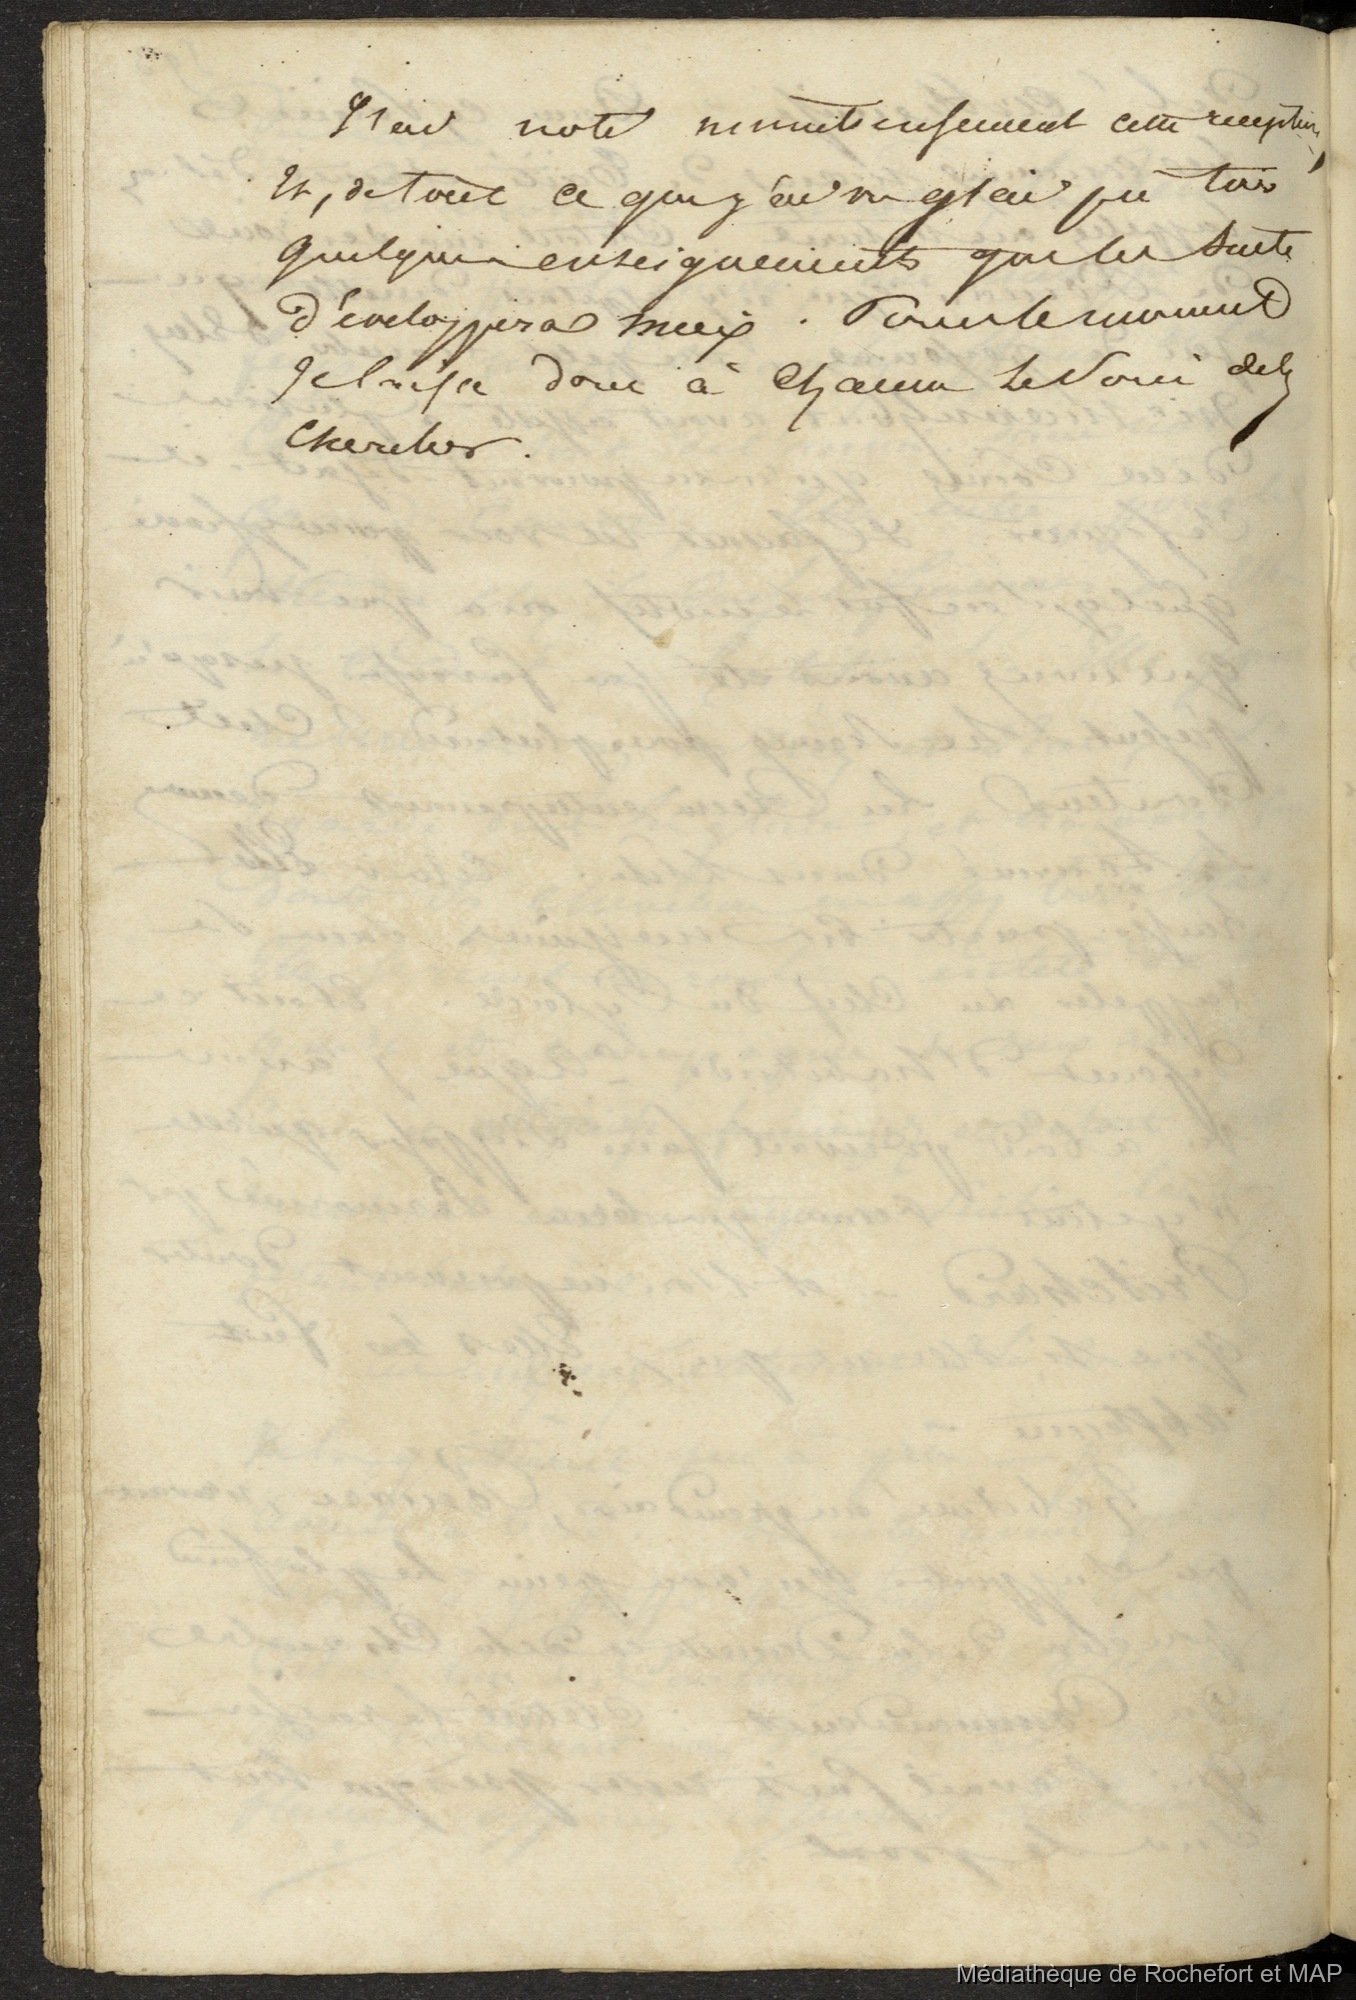 J'ai noté minutieusement cette reception,
Et, de tout ce que j'ai vu j'ai pu tirer
quelques enseignements que la suite
développera mieux. Pour le moment
Je laisse donc à chacun le soin de les
chercher.
Médiathèque de Rochefort et MAP